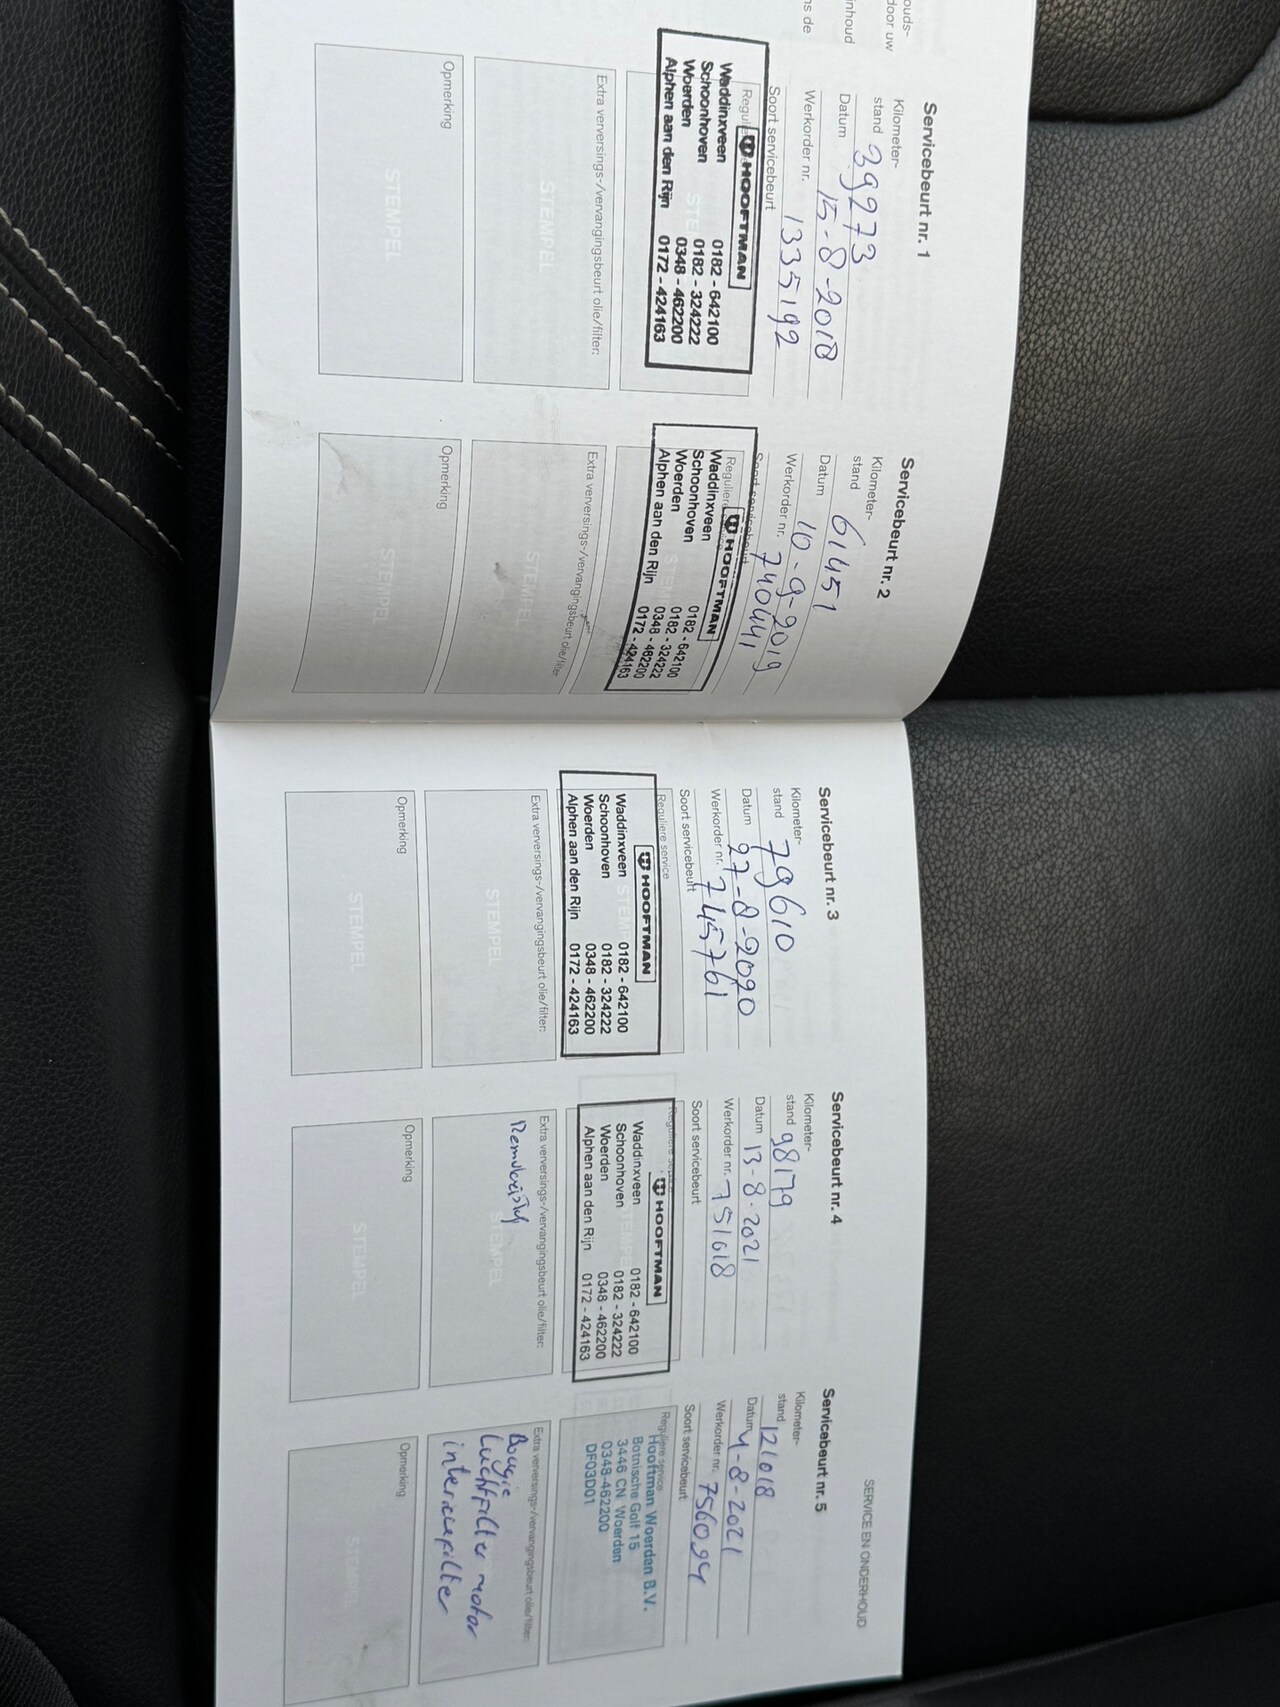 ouds-
door uw
inhoud
ns de
Servicebeurt nr. 1
Kilometer-
stand 39273
Datum 15-8-2018
Werkorder nr. 1335192
Soort servicebeurt
HOOFTMAN
Waddinxveen 0182 - 642100
Schoonhoven 0182 - 324222
Woerden 0348 - 462200
Alphen aan den Rijn 0172 - 424163
Extra verversings-/vervangingsbeurt olie/filter:
STEMPEL
Opmerking
STEMPEL
Servicebeurt nr. 2
Kilometer-
stand 61451
Datum 10-9-2019
Werkorder nr. 740441
Soort servicebeurt
Reguliere
HOOFTMAN
Waddinxveen 0182 - 642100
Schoonhoven 0182 - 324222
Woerden 0348 - 462200
Alphen aan den Rijn 0172 - 424163
Extra verversings-/vervangingsbeurt olie/filter
STEMPEL
Opmerking
STEMPEL
Servicebeurt nr. 3
Kilometer-
stand 79610
Datum 27-8-2020
Werkorder nr. 745761
Soort servicebeurt
Reguliere service
HOOFTMAN
Waddinxveen 0182 - 642100
Schoonhoven 0182 - 324222
Woerden 0348 - 462200
Alphen aan den Rijn 0172 - 424163
Extra verversings-/vervangingsbeurt olie/filter:
STEMPEL
Opmerking
STEMPEL
Servicebeurt nr. 4
Kilometer-
stand 98179
Datum 13-8-2021
Werkorder nr. 751018
Soort servicebeurt
Reguliere service
HOOFTMAN
Waddinxveen 0182 - 642100
Schoonhoven 0182 - 324222
Woerden 0348 - 462200
Alphen aan den Rijn 0172 - 424163
Extra verversings-/vervangingsbeurt olie/filter:
STEMPEL
Opmerking
STEMPEL
SERVICE EN ONDERHOUD
Servicebeurt nr. 5
Kilometer-
stand 121018
Datum 4-8-2021
Werkorder nr. 756094
Soort servicebeurt
Reguliere service
Hooftman Woerden B.V.
Botnische Golf 15
3446 CN Woerden
0348-462200
DF03D01
Extra verversings-/vervangingsbeurt olie/filter:
Bougie
Luchtfilter motor
interieurfilter
Opmerking
STEMPEL